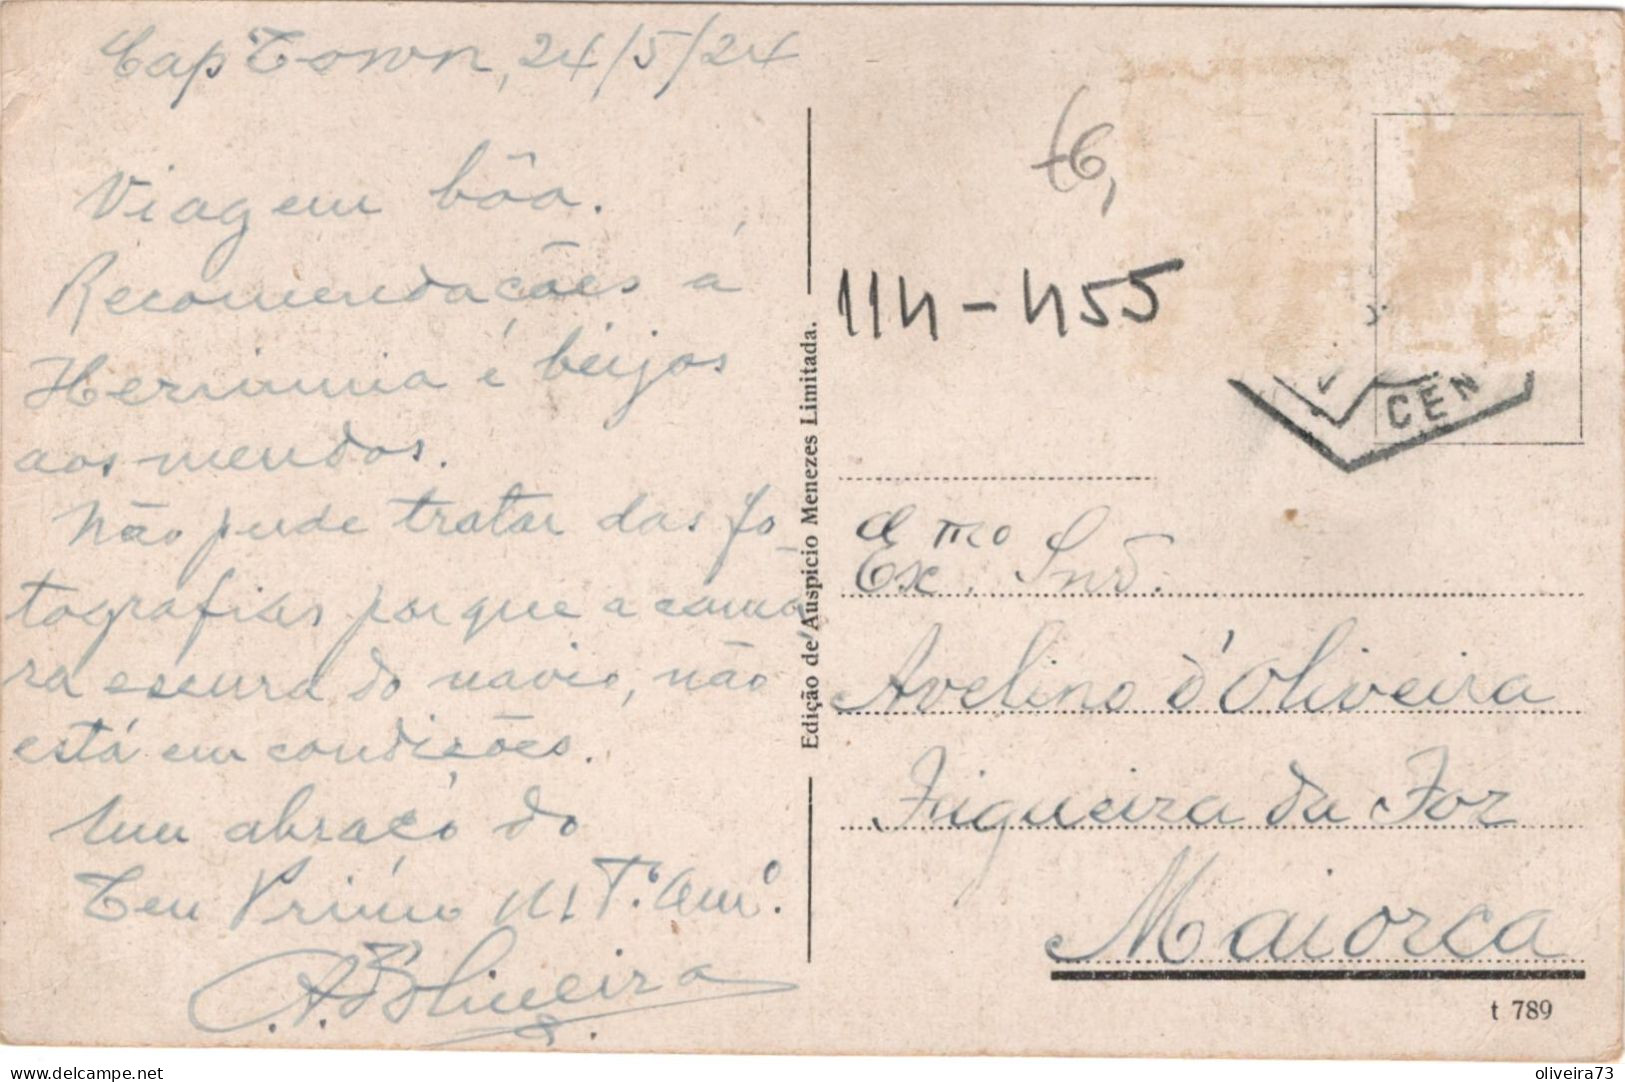 Cap Town, 24/5/24
Viagem bôa.
Recomendações á
Herminnia é beijos
aos mendos.
Não pude tratar das fo
tografias porque a cama,
ra escura do navio, não
está em condições.
Um abraço do
Teu Primo M.T.º Am.º
A. B Oliveira
Edição de Auspicio Menezes Limitada.
114-455
CEN
Ex.mo Snr.
Avelino d'Oliveira
Figueira da Foz
Maiorca
t 789
oliveira73
delcampe.net